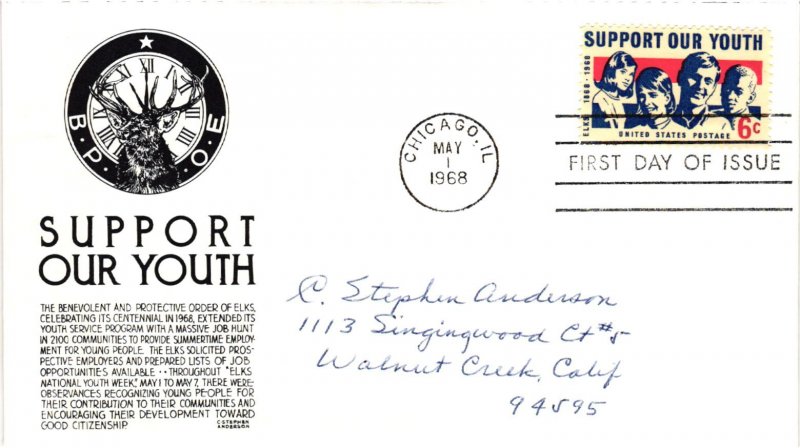 B.P.O.E
SUPPORT
OUR YOUTH
THE BENEVOLENT AND PROTECTIVE ORDER OF ELKS,
CELEBRATING ITS CENTENNIAL IN 1968, EXTENDED ITS
YOUTH SERVICE PROGRAM WITH A MASSIVE JOB HUNT
IN 2100 COMMUNITIES TO PROVIDE SUMMERTIME EMPLOY-
MENT FOR YOUNG PEOPLE. THE ELKS SOLICITED PROS-
PECTIVE EMPLOYERS AND PREPARED LISTS OF JOB
OPPORTUNITIES AVAILABLE •• THROUGHOUT "ELKS
NATIONAL YOUTH WEEK," MAY 1 TO MAY 7, THERE WERE
OBSERVANCES RECOGNIZING YOUNG PEOPLE FOR
THEIR CONTRIBUTION TO THEIR COMMUNITIES AND
ENCOURAGING THEIR DEVELOPMENT TOWARD
GOOD CITIZENSHIP.
C. STEPHEN
ANDERSON
CHICAGO, IL
MAY
1
1968
SUPPORT OUR YOUTH
ELKS 1868·1968
UNITED STATES POSTAGE 6c
FIRST DAY OF ISSUE
C. Stephen Anderson
1113 Singingwood Ct #5
Walnut Creek, Calif
94595